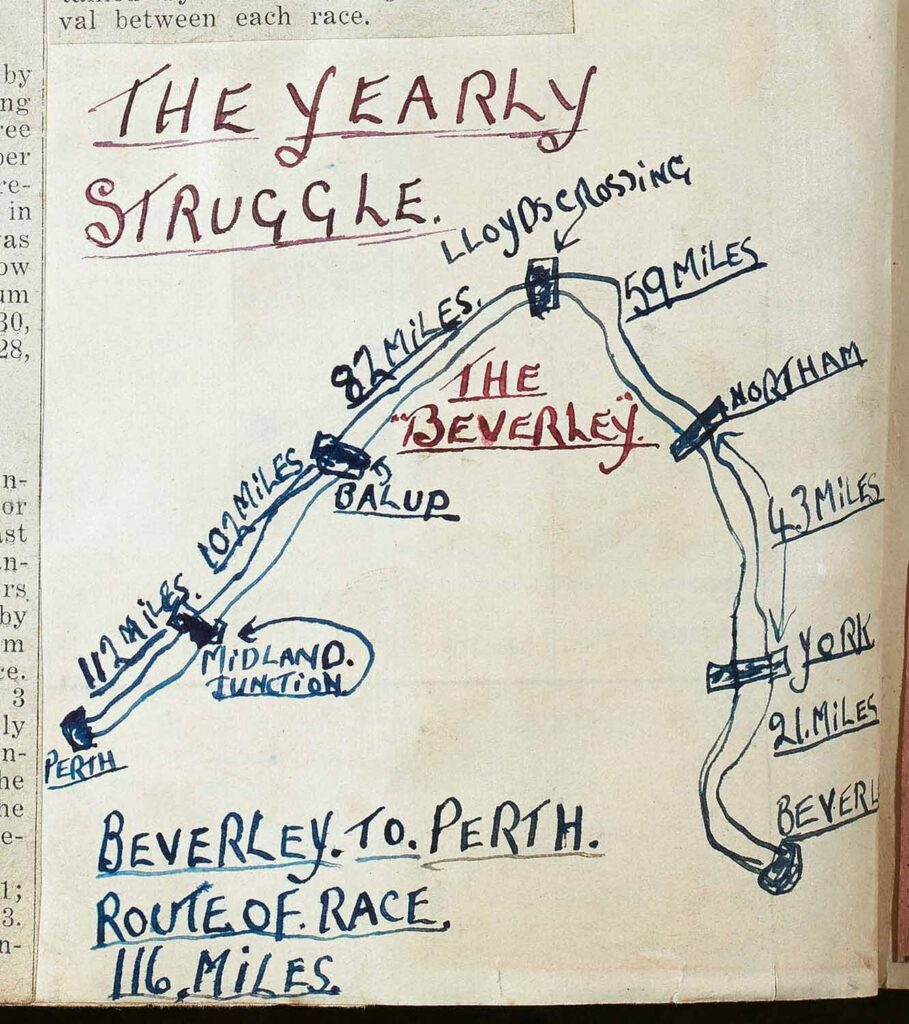 val between each race.
by
ng
ree
per
re-
in
as
ow
um
30,
28,
n-
or
ast
an-
rs
by
m
ce.
3
ly
n-
he
he
e-
1;
3.
n-
THE YEARLY
STRUGGLE.
LLOYDS CROSSING
59 MILES
82 MILES.
THE
"BEVERLEY".
NORTHAM
BALUP
102 MILES
43 MILES
112 MILES.
MIDLAND.
JUNCTION
YORK
21. MILES
PERTH
BEVERL
BEVERLEY. TO. PERTH.
ROUTE OF. RACE.
116. MILES.